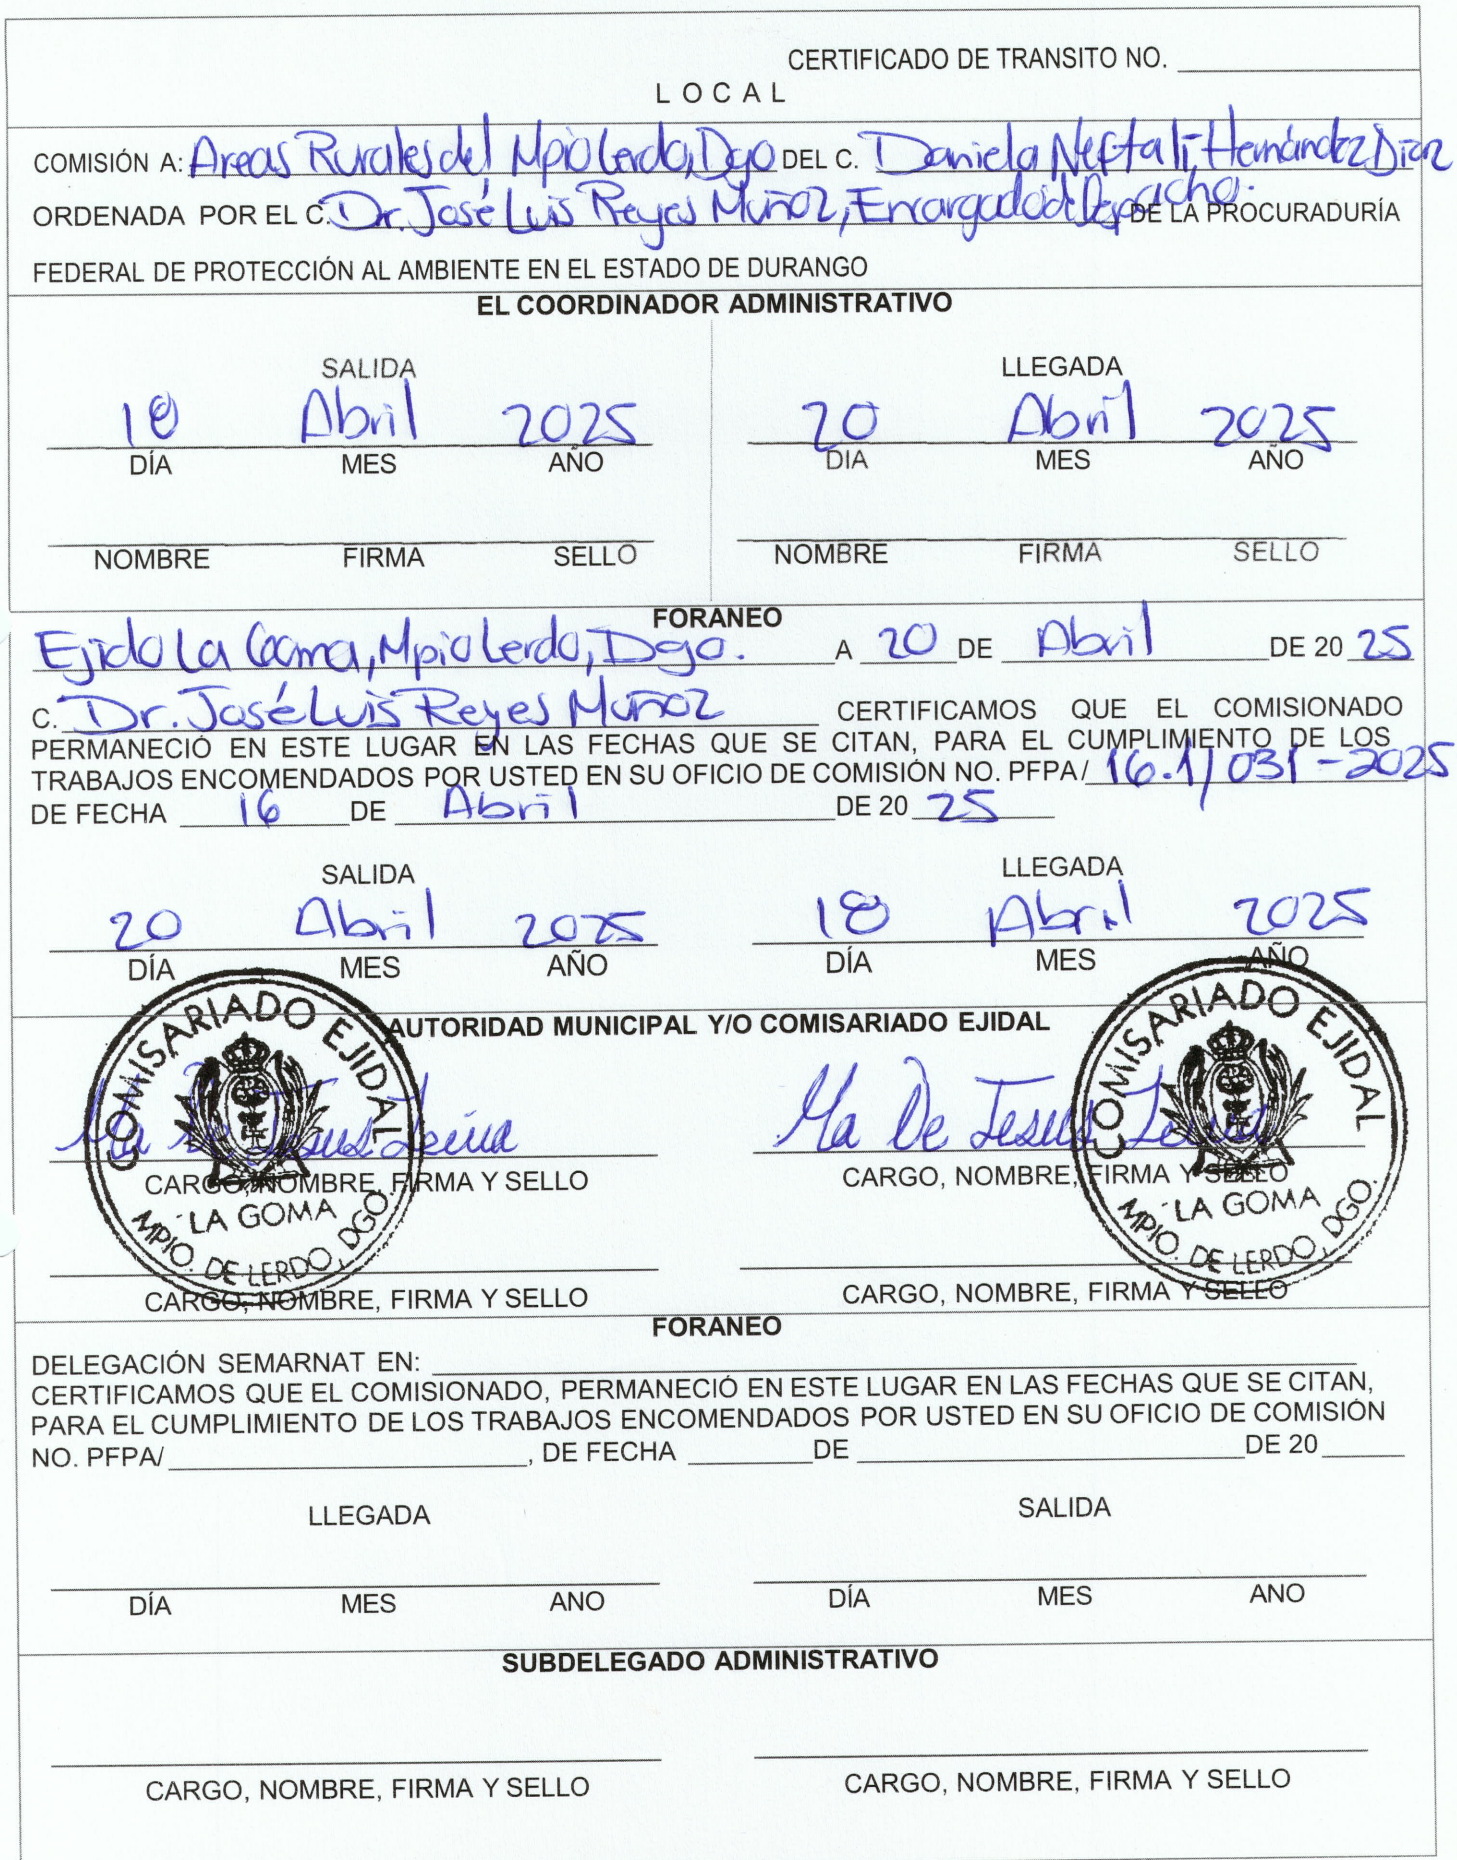 CERTIFICADO DE TRANSITO NO.
LOCAL
COMISIÓN A: Areas Rurales del Mpio Lerdo, Dgo DEL C. Daniela Neftali Hernández Díaz
ORDENADA POR EL C. Dr. José Luis Reyes Muñoz, Encargado de Despacho. DE LA PROCURADURÍA
FEDERAL DE PROTECCIÓN AL AMBIENTE EN EL ESTADO DE DURANGO
EL COORDINADOR ADMINISTRATIVO
SALIDA LLEGADA
18 Abril 2025 20 Abril 2025
DÍA MES AÑO DIA MES AÑO
NOMBRE FIRMA SELLO NOMBRE FIRMA SELLO
FORANEO
Ejido La Goma, Mpio Lerdo, Dgo. A 20 DE Abril DE 20 25
C. Dr. José Luis Reyes Muñoz CERTIFICAMOS QUE EL COMISIONADO
PERMANECIÓ EN ESTE LUGAR EN LAS FECHAS QUE SE CITAN, PARA EL CUMPLIMIENTO DE LOS
TRABAJOS ENCOMENDADOS POR USTED EN SU OFICIO DE COMISIÓN NO. PFPA/ 16.1/031-2025
DE FECHA 16 DE Abril DE 20 25
SALIDA LLEGADA
20 Abril 2025 18 Abril 2025
DÍA MES AÑO DÍA MES AÑO
AUTORIDAD MUNICIPAL Y/O COMISARIADO EJIDAL
COMISARIADO EJIDAL COMISARIADO EJIDAL
Ma De Jesus Ma De Jesus
CARGO, NOMBRE, FIRMA Y SELLO CARGO, NOMBRE, FIRMA Y SELLO
LA GOMA LA GOMA
MPIO. DE LERDO, DGO. MPIO. DE LERDO, DGO.
CARGO, NOMBRE, FIRMA Y SELLO CARGO, NOMBRE, FIRMA Y SELLO
FORANEO
DELEGACIÓN SEMARNAT EN:
CERTIFICAMOS QUE EL COMISIONADO, PERMANECIÓ EN ESTE LUGAR EN LAS FECHAS QUE SE CITAN,
PARA EL CUMPLIMIENTO DE LOS TRABAJOS ENCOMENDADOS POR USTED EN SU OFICIO DE COMISIÓN
NO. PFPA/ , DE FECHA DE DE 20
LLEGADA SALIDA
DÍA MES ANO DÍA MES ANO
SUBDELEGADO ADMINISTRATIVO
CARGO, NOMBRE, FIRMA Y SELLO CARGO, NOMBRE, FIRMA Y SELLO